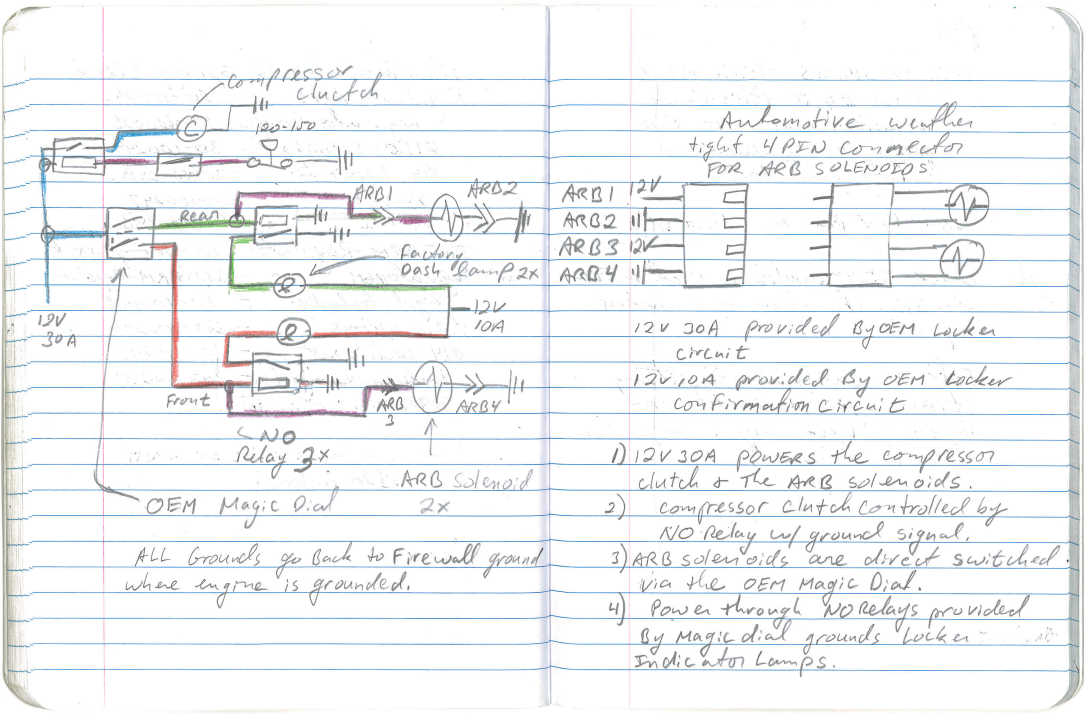 Compressor
Cluctch
C
120-150
Rear
ARB1
ARB2
Factory
Dash lamp 2x
12V
10A
12V
30A
Front
ARB
3
ARB4
NO
Relay 3x
ARB Solenoid
2x
OEM Magic Dial
ALL Grounds go Back to Firewall ground
where engine is grounded.
Automotive weather
tight 4 PIN Connector
FOR ARB SOLENOIDS
ARB1 12V
ARB2
ARB3 12V
ARB4
12V 30A provided By OEM Locker
circuit
12V 10A provided By OEM Locker
Confirmation Circuit
1) 12V 30A POWERS the compressor
clutch & The ARB solenoids.
2) compressor Clutch Controlled by
NO Relay w/ ground signal.
3) ARB solenoids are direct switched
via the OEM Magic Dial.
4) Power through NO Relays provided
By Magic dial grounds Locker
Indicator Lamps.